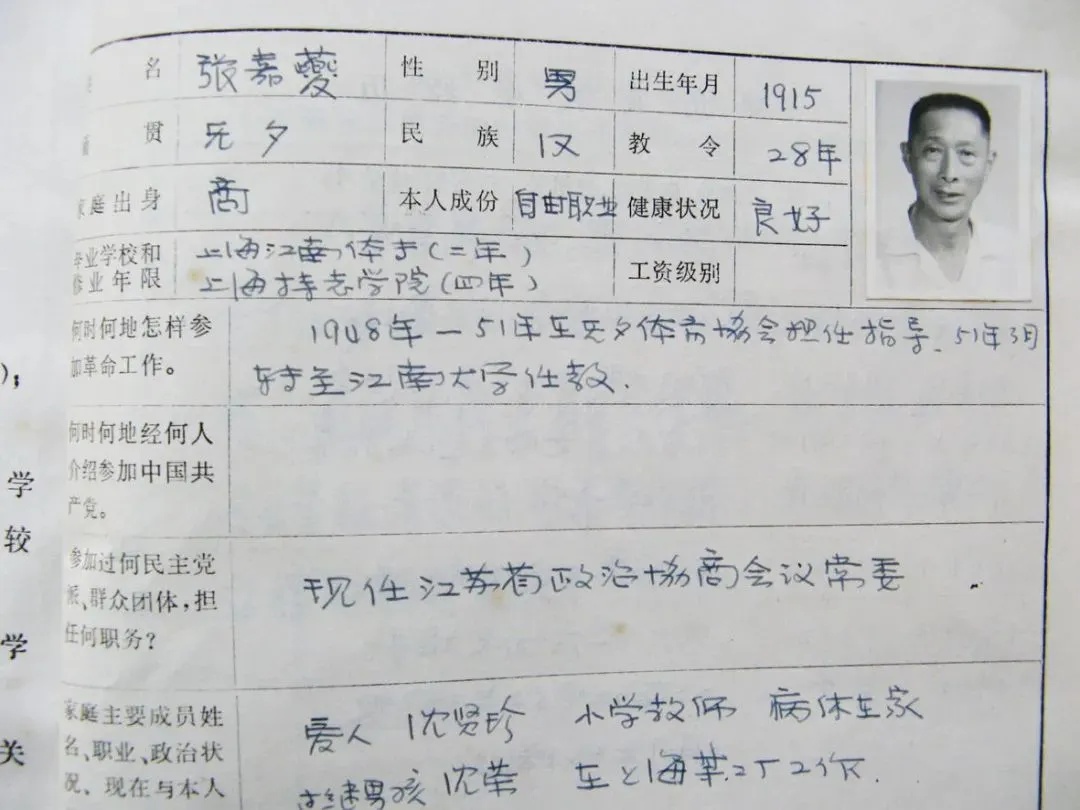 名 张嘉夔 性别 男 出生年月 1915
贯 无夕 民族 汉 教令 28年
家庭出身 商 本人成份 自由职业 健康状况 良好
毕业学校和 上海江南体专(二年)
修业年限 上海持志学院(四年) 工资级别
何时何地怎样参 1948年—51年在无夕体育協会担任指导.51年3月
加革命工作。 转至江南大学任教.
何时何地经何人
介绍参加中国共
产党。
参加过何民主党
派、群众团体,担 现任江苏省政治協商会议常委
任何职务?
家庭主要成员姓 爱人 沈贤珍 小学教师 病休在家
名、职业、政治状
况、现在与本人 男孩 沈荣 在上海某工厂工作.
);
学
较
学
关